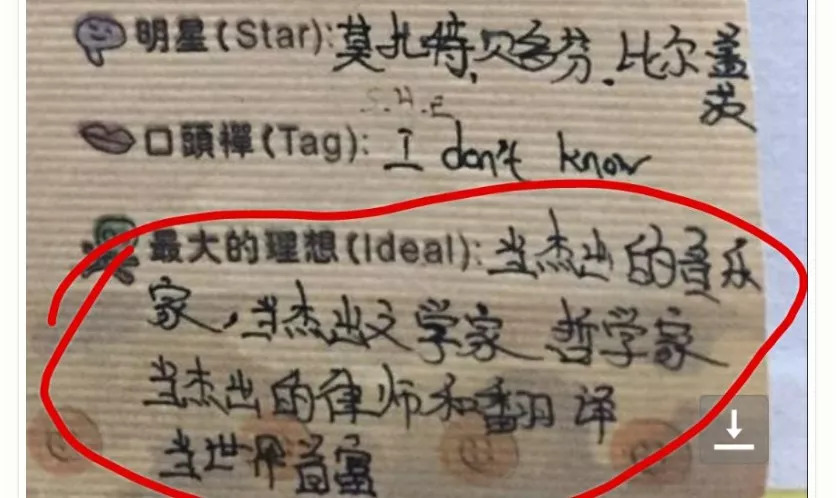 明星(Star):莫扎特,贝多芬.比尔盖
茨
S.H.E
口頭禪(Tag): I don't know
最大的理想(Ideal):当杰出的音乐
家,当杰出文学家 哲学家
当杰出的律师和翻译
当世界首富